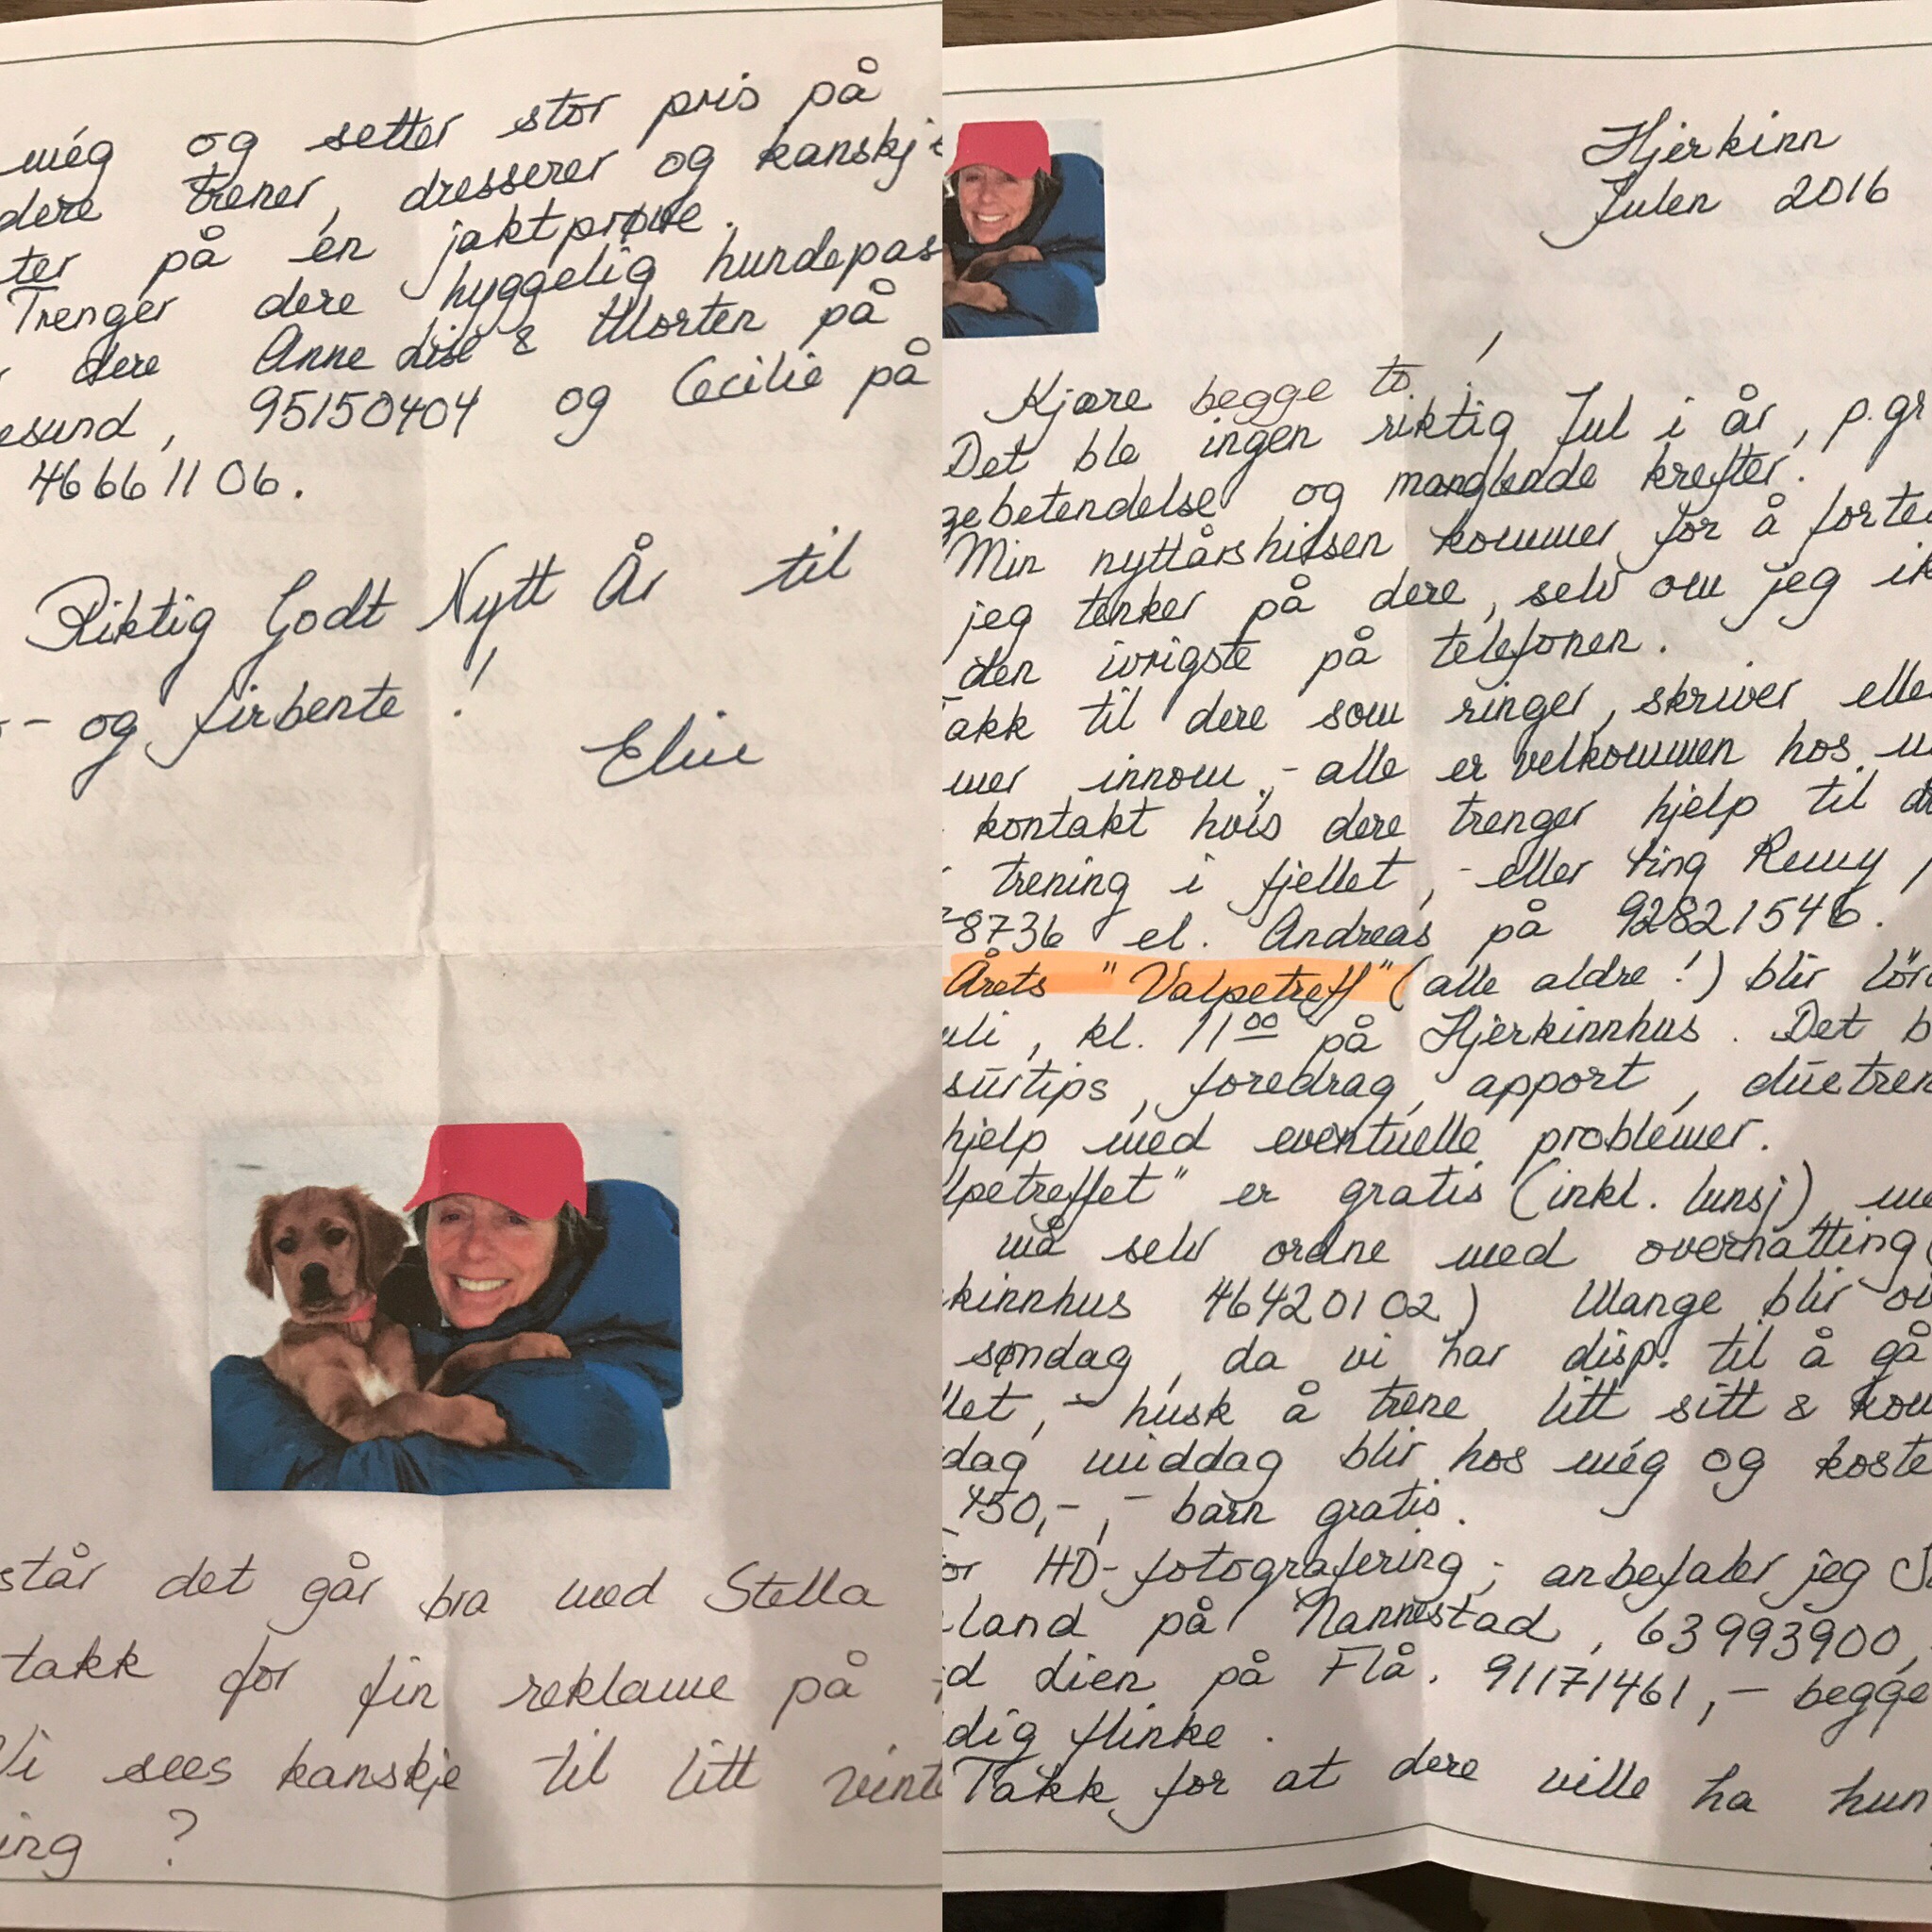 még og setter stor pris på
dere trener, dresserer og kanskje
ter på én jaktprøve.
Trenger dere hyggelig hundepas
dere Anne Lise & Morten på
esund, 95150404 og Cecilie på
46661106.
Riktig Godt Nytt År til
- og firbente!
Eline
står det går bra med Stella
takk for fin reklame på
Vi sees kanskje til litt vint
ing ?
Hjerkinn
Julen 2016
Kjære begge to!
Det ble ingen riktig Jul i år, p.gr
gebetendelse og manglende krefter.
Min nyttårshilsen kommer for å forte
jeg tenker på dere, selv om jeg ik
den ivrigste på telefonen.
akk til dere som ringer, skriver elle
mer innom, - alle er velkommen hos
kontakt hvis dere trenger hjelp til
trening i fjellet, - eller ring Remy
8736 el. Andreas på 92821546.
Årets "Valpetreff" (alle aldre!) blir lör
uli, kl. 11⁰⁰ på Hjerkinnhus. Det b
surtips, foredrag, apport, duetren
hjelp med eventuelle problemer.
lpetreffet" er gratis (inkl. lunsj) me
må selv ordne med overnatting (
kinnhus 46420102) Mange blir ov
søndag, da vi har disp. til å gå
llet, - husk å trene litt sitt & kom
dag middag blir hos még og koste
450,-, - barn gratis.
or HD-fotografering; anbefaler jeg
land på Nannestad, 63993900,
d Lien på Flå. 91171461, - begge
dig flinke.
Takk for at dere ville ha hun